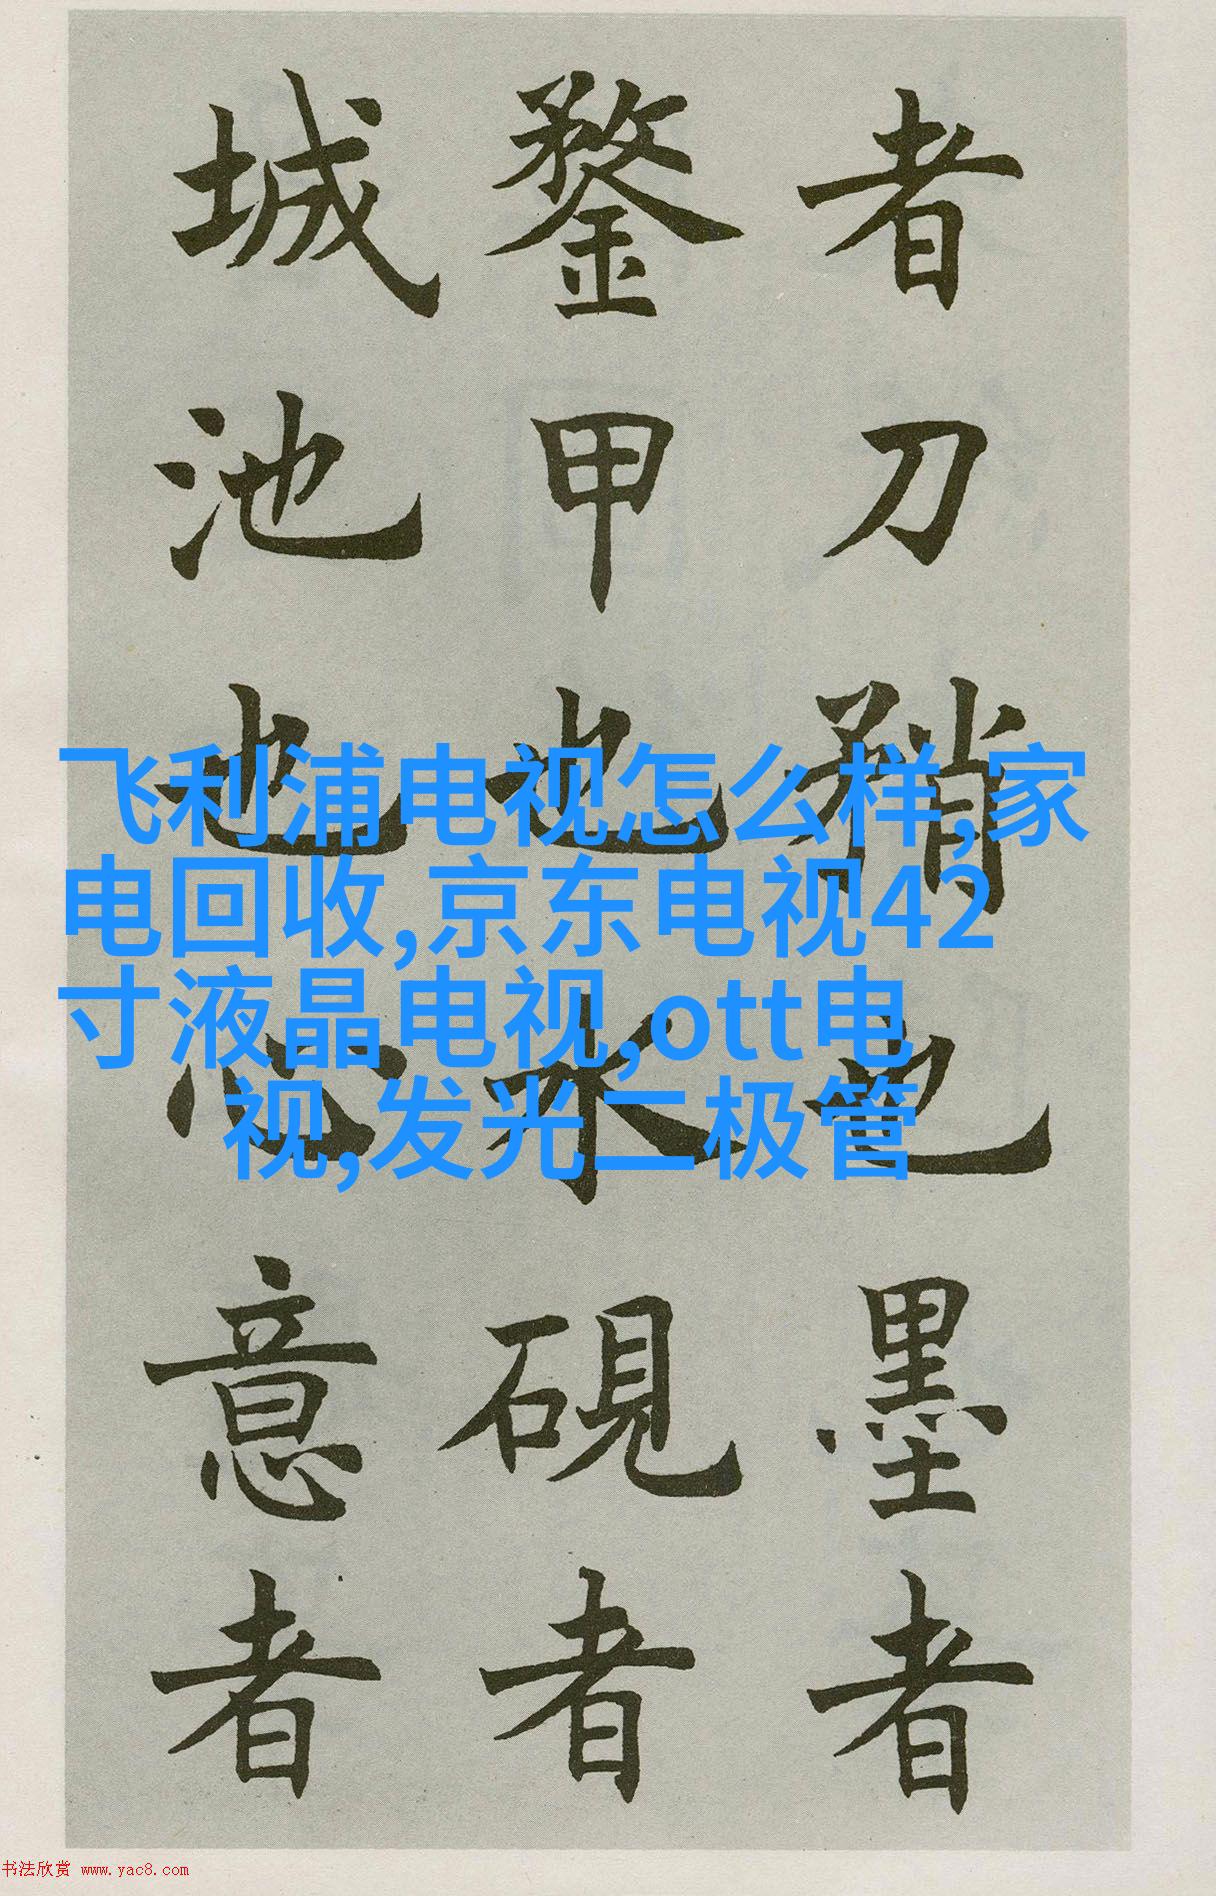 者刀矟也墨者
鍪甲也水硯者
城池也心意者
飞利浦电视怎么样,家
电回收,京东电视42
寸液晶电视,ott电
视,发光二极管
书法欣赏 www.yac8.com